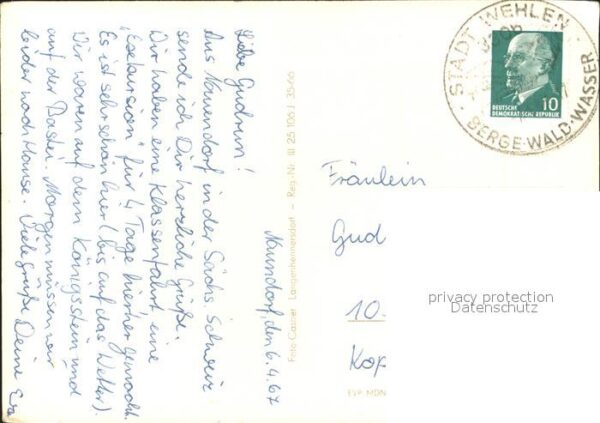 Naundorf, den 6.4.67
Liebe Gudrun!
Aus Naundorf in der Sächs. Schweiz
sende ich Dir herzliche Grüße.
Wir haben eine Klassenfahrt, eine
"Exkursion" für 4 Tage hierher gemacht.
Es ist sehr schön hier (bis auf das Wetter).
Wir waren auf dem Königsstein und
auf der Bastei. Morgen müssen wir
leider nach Hause. Viele Grüße Deine
Foto-Castner Langenhennersdorf - Reg.-Nr. III 26 106 J 35/66
STADT WEHLEN
BERGE·WALD·WASSER
DEUTSCHE
DEMOKRATISCHE REPUBLIK
10
Fräulein
Gud
10.
Kop
EVP MDN
privacy protection
Datenschutz